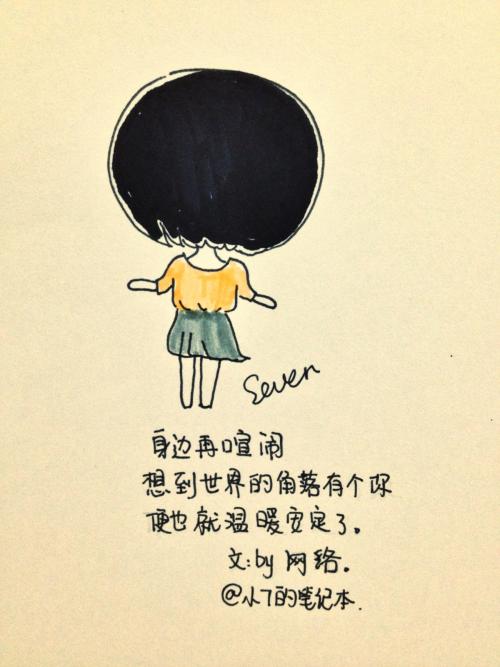 Seven
身边再喧闹
想到世界的角落有个你
便也就温暖安定了。
文:by 网络。
@小7的笔记本.